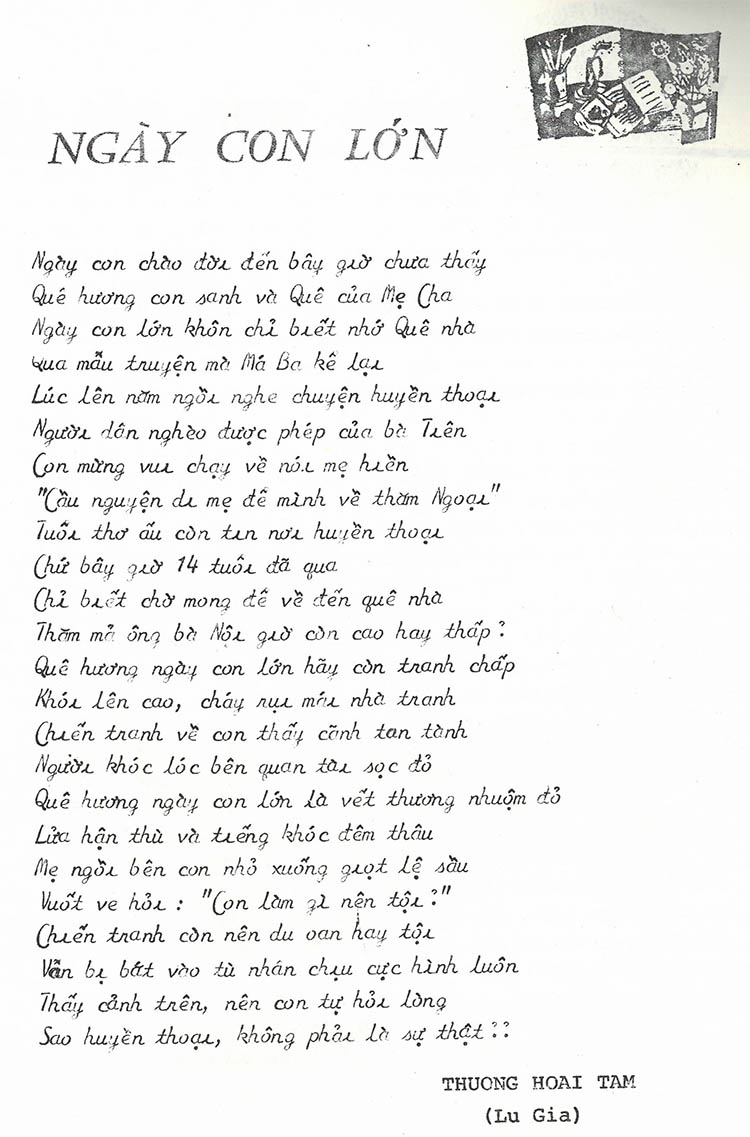 NGÀY CON LỚN
Ngày con chào đời đến bây giờ chưa thấy
Quê hương con sanh và Quê của Mẹ Cha
Ngày con lớn khôn chỉ biết nhớ Quê nhà
Qua mẫu truyện mà Má Ba kể lại
Lúc lên năm ngồi nghe chuyện huyền thoại
Người dân nghèo được phép của bà Tiên
Con mừng vui chạy về nói mẹ hiền
"Cầu nguyện di mẹ để mình về thăm Ngoại"
Tuổi thơ ấu còn tin nơi huyền thoại
Chứ bây giờ 14 tuổi đã qua
Chỉ biết chờ mong để về đến quê nhà
Thăm mả ông bà Nội giờ còn cao hay thấp?
Quê hương ngày con lớn hãy còn tranh chấp
Khói lên cao, cháy rụi mái nhà tranh
Chiến tranh về con thấy cãnh tan tành
Người khóc lóc bên quan tài sọc đỏ
Quê hương ngày con lớn là vết thương nhuộm đỏ
Lửa hận thù và tiếng khóc đêm thâu
Mẹ ngồi bên con nhỏ xuống giọt lệ sầu
Vuốt ve hỏi : "Con làm gì nên tội?"
Chiến tranh còn nên du oan hay tội
Vẫn bị bắt vào tù nhân chịu cực hình luôn
Thấy cảnh trên, nên con tự hỏi lòng
Sao huyền thoại, không phải là sự thật??
THUONG HOAI TAM
(Lu Gia)